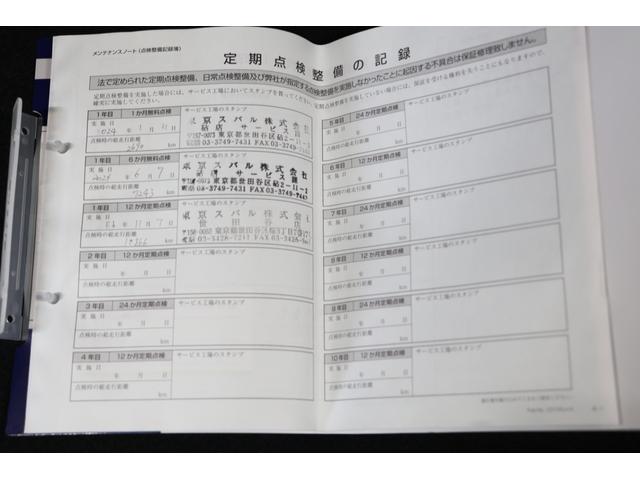 メンテナンスノート(点検整備記録簿)
定期点検整備の記録
法で定められた定期点検整備、日常点検整備及び弊社が指定する点検整備を実施しなかったことに起因する不具合は保証修理致しません。
定期点検整備を実施した場合には、サービス工場においてスタンプを貰ってください。定期点検整備を実施していない場合には、保証を受ける権利を失うことにもなりますので、
確実に実施してください。
1年目 1か月無料点検 サービス工場のスタンプ
実施日
東京スバル株式会社
砧店 サービス
東京都世田谷区砧2-11-
03-3749-7431 FAX03-
点検時の総走行距離
km
1年目 6か月無料点検 サービス工場のスタンプ
実施日
6月7
東京スバル株式会社
砧店 サービス課
東京都世田谷区砧2-11-
03-3749-7431 FAX03-
点検時の総走行距離
7243 km
1年目 12か月定期点検 サービス工場のスタンプ
実施日
11月7日
東京スバル株式会社
世田谷店
東京都世田谷区桜3丁目
点検時の総走行距離
km
2年目 12か月定期点検 サービス工場のスタンプ
実施日
年 月 日
点検時の総走行距離
km
3年目 24か月定期点検 サービス工場のスタンプ
実施日
年 月 日
点検時の総走行距離
km
4年目 12か月定期点検 サービス工場のスタンプ
実施日
年 月 日
点検時の総走行距離
km
5年目 24か月定期点検 サービス工場のスタンプ
実施日
年 月 日
点検時の総走行距離
km
6年目 12か月定期点検 サービス工場のスタンプ
実施日
年 月 日
点検時の総走行距離
km
7年目 24か月定期点検 サービス工場のスタンプ
実施日
年 月 日
点検時の総走行距離
km
8年目 12か月定期点検 サービス工場のスタンプ
実施日
年 月 日
点検時の総走行距離
km
9年目 24か月定期点検 サービス工場のスタンプ
実施日
年 月 日
点検時の総走行距離
km
10年目 12か月定期点検 サービス工場のスタンプ
実施日
年 月 日
点検時の総走行距離
km